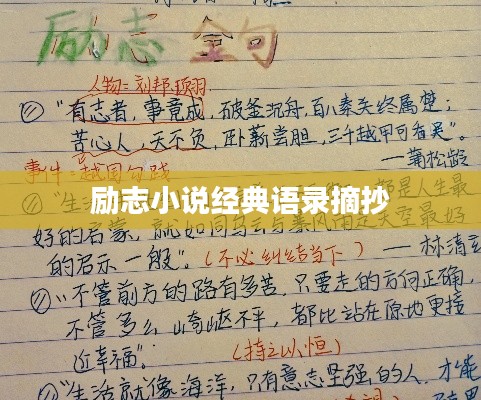 励志 金句
人物：刘邦、项羽
① "有志者，事竟成，破釜沉舟，百八秦关终属楚；
苦心人，天不负，卧薪尝胆，三千越甲可吞吴"。
—— 蒲松龄
事件：越国勾践
② "生 都是人生最
励志小说经典语录摘抄
好的启蒙，就如同乌云与暴风雨是天空最好
的启示一般"。（不必纠结当下） —— 林清玄
③ "不管前方的路有多苦，只要走的方向正确，
不管多么崎岖不平，都比站在原地更接
近幸福"。（持之以恒）
④ "生活就像海洋，只有意志坚强的人，才能